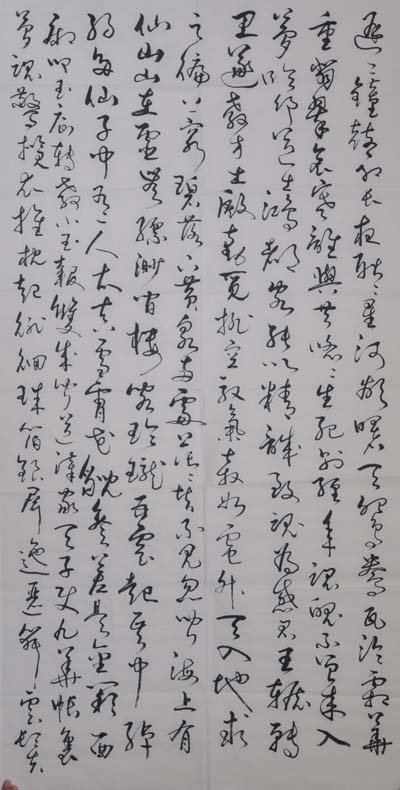 遲〻鐘鼓初長夜耿〻星河欲曙天鴛鴦瓦冷霜華
重翡翠衾寒誰與共悠〻生死別經年魂魄不曾來入
夢臨邛道士鴻都客能以精誠致魂為感君王輾轉
思遂教方士殷勤覓排空馭氣奔如電升天入地求
之徧上窮碧落下黃泉兩處茫〻皆不見忽聞海上有
仙山山在虛無縹緲間樓閣玲瓏五雲起其中綽
約多仙子中有一人太真雪膚花貌參差是金闕西
廂叩玉扃轉教小玉報雙成聞道漢家天子使九華帳裏
夢魂驚攬衣推枕起徘徊珠箔銀屏迤邐雲鬢